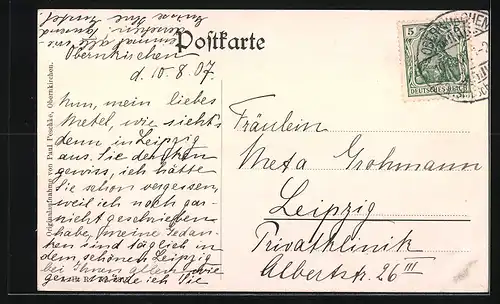 Postkarte
Obernkirchen
d. 10.8.07.
Nun, mein liebes
Metel, wie sieht's
denn in Leipzig
aus. Sie denken
gewiss, ich hätte
Sie schon vergessen,
weil ich noch gar-
nicht geschrieben
habe, meine Gedan-
ken sind täglich in
dem schönen Leipzig
bei Ihnen allen, wie
gern würde ich Sie
einmal alle wie-
Ihre
Originalaufnahme von Paul Peschke, Obernkirchen.
5
DEUTSCHES REICH
OBERNKIRCHEN
Fräulein
Meta Grohmann
Leipzig
Privatklinik
Albertstr. 26 III